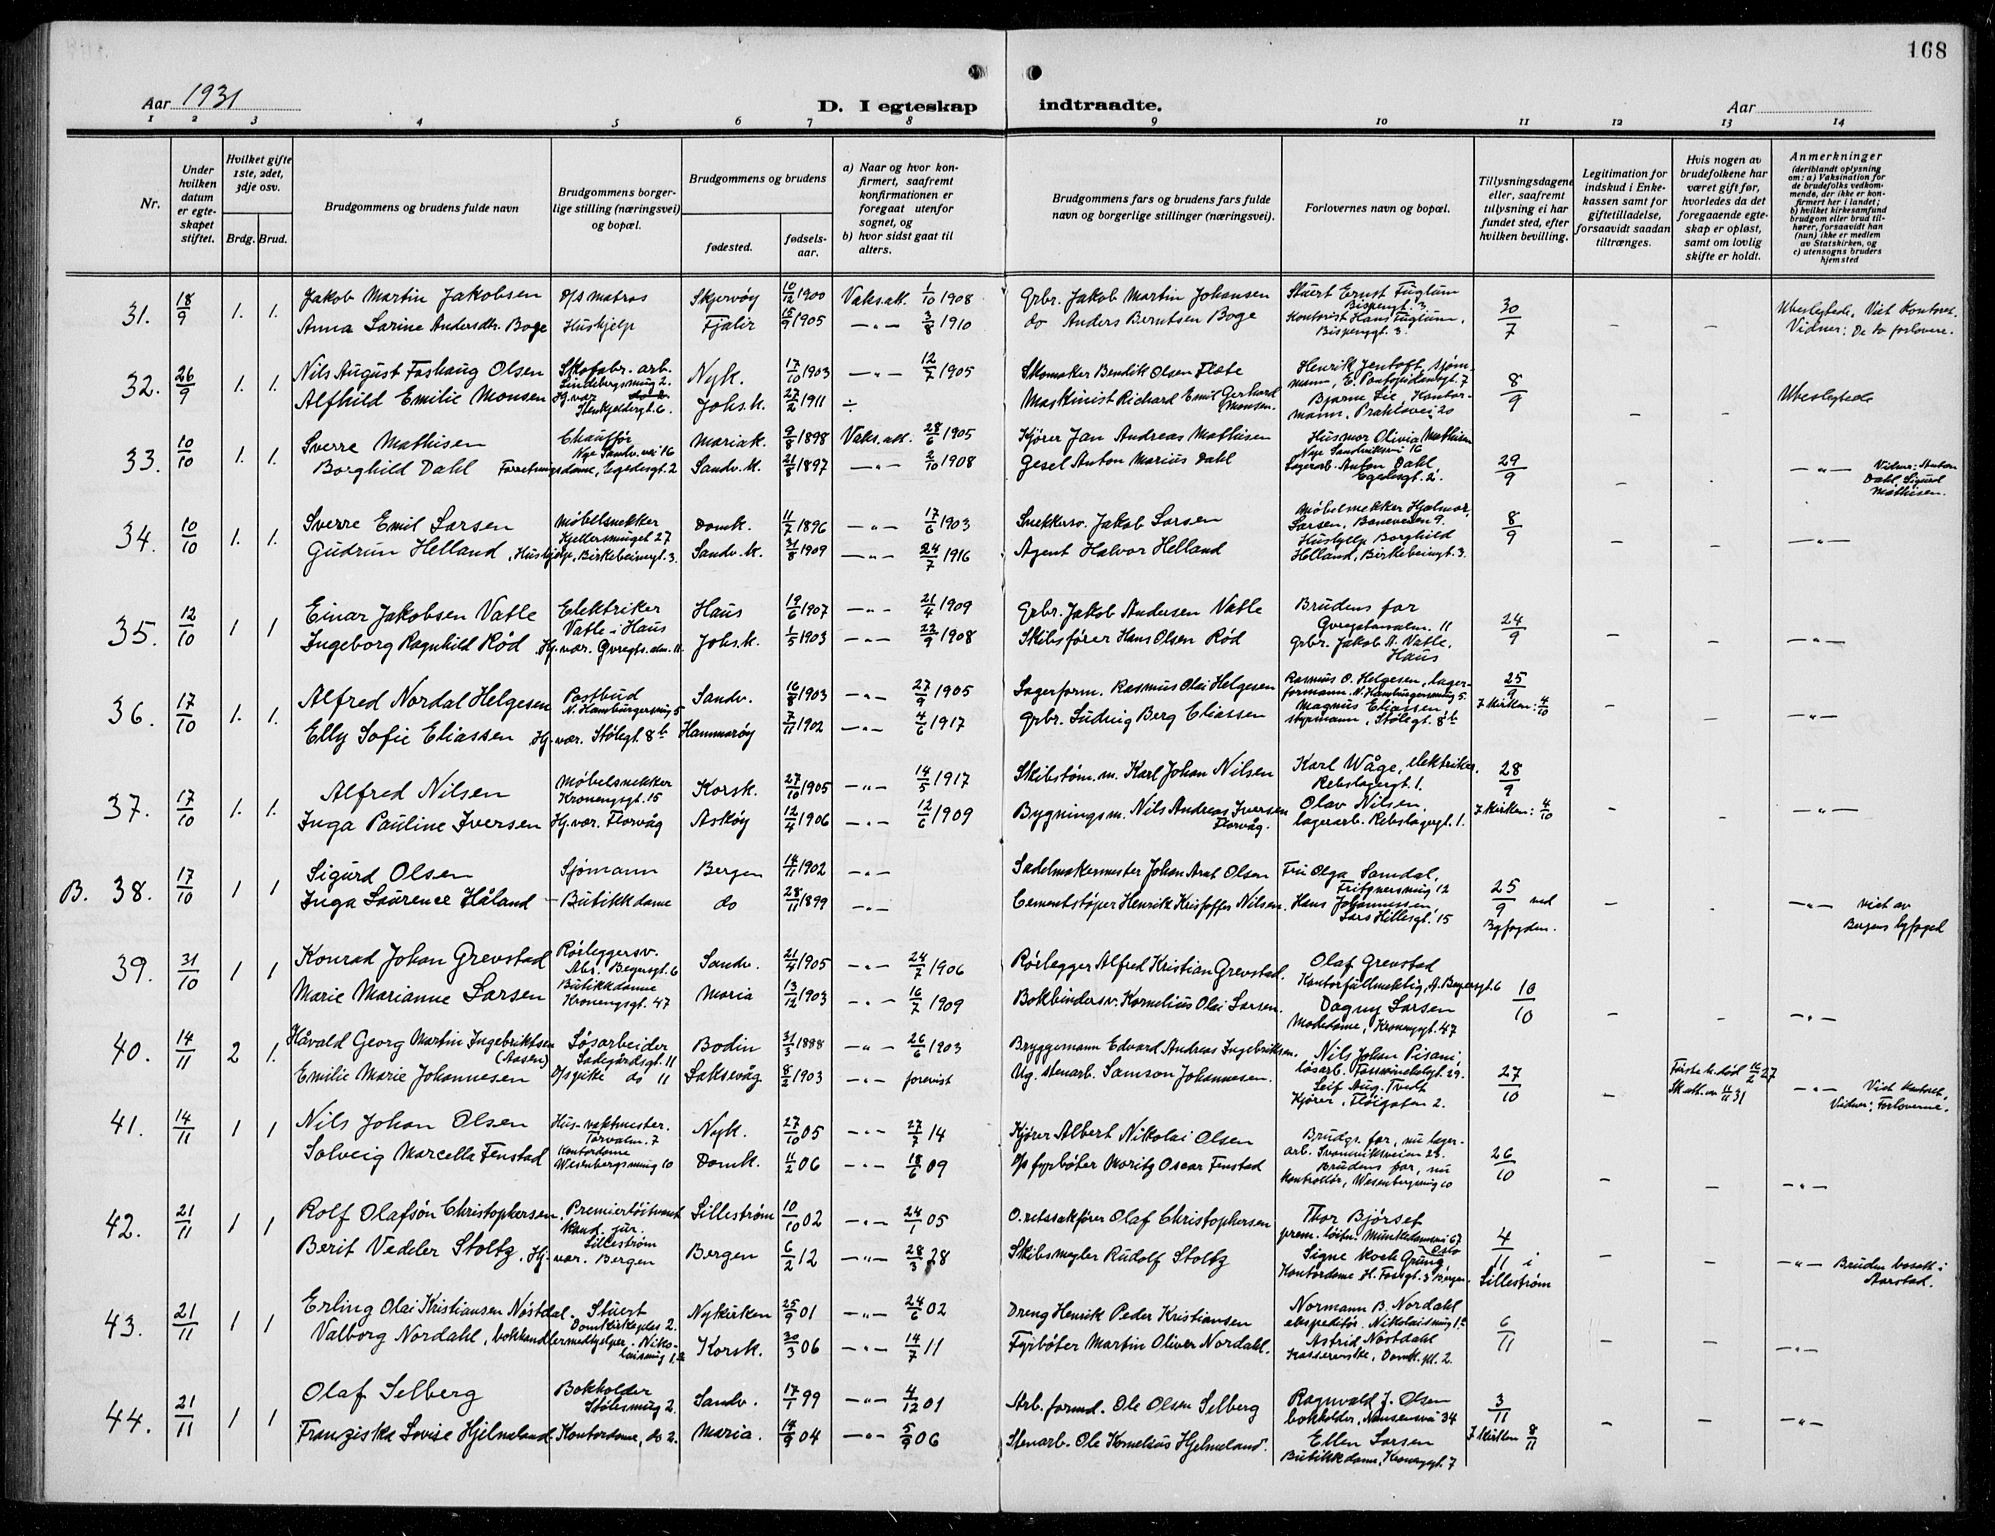 168
Aar 1931
D. I egteskap indtraadte.
Aar
1 2 3 4 5 6 7 8 9 10 11 12 13 14
Nr.
Under hvilken datum er egteskapet stiftet.
Hvilket gifte 1ste, 2det, 3dje osv.
Brdg. Brud.
Brudgommens og brudens fulde navn
Brudgommens borgerlige stilling (næringsvei) og bopæl.
Brudgommens og brudens
fødested.
fødselsaar.
a) Naar og hvor konfirmert, saafremt konfirmationen er foregaat utenfor sognet, og
b) hvor sidst gaat til alters.
Brudgommens fars og brudens fars fulde navn og borgerlige stillinger (næringsvei).
Forlovernes navn og bopæl.
Tillysningsdagene eller, saafremt tillysning ei har fundet sted, efter hvilken bevilling.
Legitimation for indskud i Enkekassen samt for giftetilladelse, forsaavidt saadan tiltrænges.
Hvis nogen av brudefolkene har været gift før, hvorledes da det foregaaende egteskap er opløst, samt om lovlig skifte er holdt.
Anmerkninger (deriblandt oplysning om: a) Vaksination for de brudefolks vedkommende, der ikke er konfirmert her i landet; b) hvilket kirkesamfund brudgom eller brud tilhører, forsaavidt han (hun) ikke er medlem av Statskirken, og c) utensogns bruders hjemsted
31. 18/9 1. 1. Jakob Martin Jakobsen D/S matros Skjervøy 10/12 1900 Vaks.att. 1/10 1908 Grbr. Jakob Martin Johansen Stuert Ernst Fuglum Bispengt. 3 30/7 Ubeslegtede. Viet kontoret.
Anna Sarine Andersdtr. Boge Hushjelp Fjaler 15/9 1905 —"— 3/8 1910 do Anders Berntsen Boge Kontorist Hans Fuglum, Bispengt. 3. – – Vidner: De to forlovere.
32. 26/9 1. 1. Nils August Foshaug Olsen Skofabr. arb. Lindebergsmug 2. Nyk. 17/10 1903 —"— 12/7 1905 Skomaker Bendik Olsen Fløte Henrik Jentoft, sjømmann, E. Pontopidansgt. 7 8/9 Ubeslegtede
Alfhild Emilie Monsen Hj. vær Stenkjeldergt. 6. Johs.k. 27/2 1911 ÷ Maskinist Richard Emil Gerhard Monsen. Bjarne Lie, Kontormann, Brakleivei 20 – –
33. 10/10 1. 1. Sverre Mathisen Chauffør Nye Sandv. vei 16 Mariak. 9/8 1898 Vaks.att. 28/6 1905 Kjører Jan Andreas Mathisen Husmor Olivia Mathisen Nye Sandviksvei 16 29/9
Borghild Dahl Forretningsdame, Egedesgt. 2 Sandv.k. 21/8 1897 —"— 2/10 1908 Gesel Anton Marius Dahl Lagerarb. Anton Dahl, Egedesgt. 2. – – —"— Vidner: Anton Dahl, Sigurd Mathisen.
34. 10/10 1. 1. Sverre Emil Larsen Møbelsnekker Kjellersmuget 27 Domk. 11/7 1896 —"— 17/6 1903 Snekkersv. Jakob Larsen Møbelsnekker Hjalmar Larsen, Baneveien 9. 8/9
Gudrun Helland, Hushjelp, Birkebeinergt. 3. Sandv.k. 31/8 1909 —"— 24/7 1916 Agent Halvor Helland Hushjelp Borghild Helland, Birkebeinergt. 3. – – —"—
35. 12/10 1 1 Einar Jakobsen Vatle Elektriker Vatle i Haus Haus 19/6 1907 —"— 21/4 1909 Grbr. Jakob Andersen Vatle Brudens far Gvregtsalm. 11 24/9
Ingeborg Ragnhild Rød Hj. vær. Gvregts.alm. 11 Johs.k. 1/5 1903 —"— 22/9 1908 Skibsfører Hans Olsen Rød Grbr. Jakob A. Vatle, Haus – – —"—
36. 17/10 1. 1. Alfred Nordal Helgesen Postbud N. Hamburgersmug 5 Sandv. 16/8 1903 —"— 27/9 1905 Lagerform. Rasmus Olai Helgesen Rasmus O. Helgesen, lagerformann. N. Hamburgersmug 5. 25/9
Elly Sofie Eliassen Hj. vær. Stølegt. 8b Hammarøy 7/11 1902 —"— 4/6 1917 Grbr. Ludvig Berg Eliassen Magnus Eliassen, styrmann, Stølegt. 8b I kirken: 4/10 – – —"—
37. 17/10 1. 1. Alfred Nilsen Møbelsnekker Kronengsgt. 15 Korsk. 27/10 1905 —"— 14/5 1917 Skibstøm.m. Karl Johan Nilsen Karl Wåge, elektriker. Rebslagergt. 1. 28/9
Inga Pauline Iversen Hj. vær. Florvåg Askøy 12/4 1906 —"— 12/6 1909 Bygningsm. Nils Andreas Iversen Florvåg. Olav Nilsen, lagerarb. Rebslagergt. 1. I kirken: 4/10 – – —"—
B. 38. 17/10 1 1 Sigurd Olsen Sjømann Bergen 14/11 1902 —"— Sadelmakermester Johan Arnt Olsen Frü Olga Samdal, Frifgnersmug 12 25/9 ved Byfogden.
Inga Laurence Håland – Butikkdame do 28/11 1899 —"— Cementstøper Henrik Kristoffer Nilsen. Hans Johannessen Lars Hillesgt. 15 – – —"— viet av Bergens byfoged
39. 31/10 1 1 Konrad Johan Grevstad Rørleggersv. Abs. Beyersgt. 6 Sandv. 21/4 1905 —"— 24/7 1906 Rørlegger Alfred Kristian Grevstad. Olaf Grevstad Kontorfullmektig, A. Beyersgt. 6 10/10
Marie Marianne Larsen Butikkdame Kronengsgt. 47 Maria 13/12 1903 —"— 16/7 1909 Bokbindersv. Kornelius Olai Larsen. Dagny Larsen Modedame, Kronengsgt. 47 – – —"—
40. 14/11 2 1. Håvald Georg Martin Ingebriktsen (Aasen) Løsarbeider Ladegårdsgt. 11 Bodin 31/3 1888 —"— 26/6 1903 Bryggemann Edvard Andreas Ingebriktsen. Nils Johan Pisani, løsarb. Fersevinckelsgt. 29. 27/10 Første h. død 12/2 27
Emilie Marie Johannesen D/spike do 11 Laksevåg 8/2 1903 —"— forevist Ug. stenarb. Samson Johannesen. Leif Aug. Tvedt Kjører, Fløigaten 2. – Sk.att. av 11/11 31 —"— Viet kontoret, Vidner: Forloverne.
41. 14/11 1 1 Nils Johan Olsen Hus-vaktmester. Torvalm. 7 Nyk. 27/10 05 —"— 27/7 14 Kjører Albert Nikolai Olsen Brudgs. far, nu lagerarb. Svaneviksveien 23. 26/10
Solveig Marcella Fenstad Kontordame Wesenbergsmug 10 Domk. 11/2 06 —"— 18/6 09 D/s fyrbøter Moritz Oscar Fenstad Brudens far, nu kontrollør, Wesenbergsmug 10 – – —"—
42. 21/11 1 1 Rolf Olafsøn Christophersen Premierløitnant kand. jur. Lillestrøm Lillestrøm 10/10 02 —"— 24/1 05 O.retssakfører Olaf Christophersen Thor Bjørset prem. løitn. Munkedamsvei 67 Oslo 4/11 i Lillestrøm
Berit Vedeler Stoltz. Hj. vær. Bergen Bergen 6/2 12 —"— 28/3 28 Skibsmegler Rudolf Stoltz Signe Koch Grung, Kontordame H. Fossgt. 3 Bergen – – —"— Bruden bosatt i Aarstad.
43. 21/11 1 1 Erling Olai Kristiansen Nøstdal. Stuert Domkirkeplas 2. Nykirken 25/9 01 —"— 24/6 02 Dreng Henrik Peder Kristiansen Normann B. Nordahl ekspeditør. Nikolaismug 1a 6/11
Valborg Nordahl, bokhandlermedhjelper, Nikolaismug 1a Korsk. 30/3 06 —"— 14/7 11 Fyrbøter Martin Oliver Nordahl. Astrid Nøstdahl Kassererske, Domk. pl. 2. – – —"—
44. 21/11 1 1 Olaf Selberg Bokholder Stølesmug 2. Sandv. 17/1 99 —"— 4/12 01 Arb. formd. Ole Olsen Selberg Ragnvald J. Olsen bokholder, Nansensvei 34 3/11
Franziska Lovise Hjelmeland Kontordame, do 2. Maria. 14/9 04 —"— 5/9 06 Stenarb. Ole Kornelius Hjelmeland. Ellen Larsen Butikkdame, Kronengsgt. 7 I kirken 8/11 – – —"—